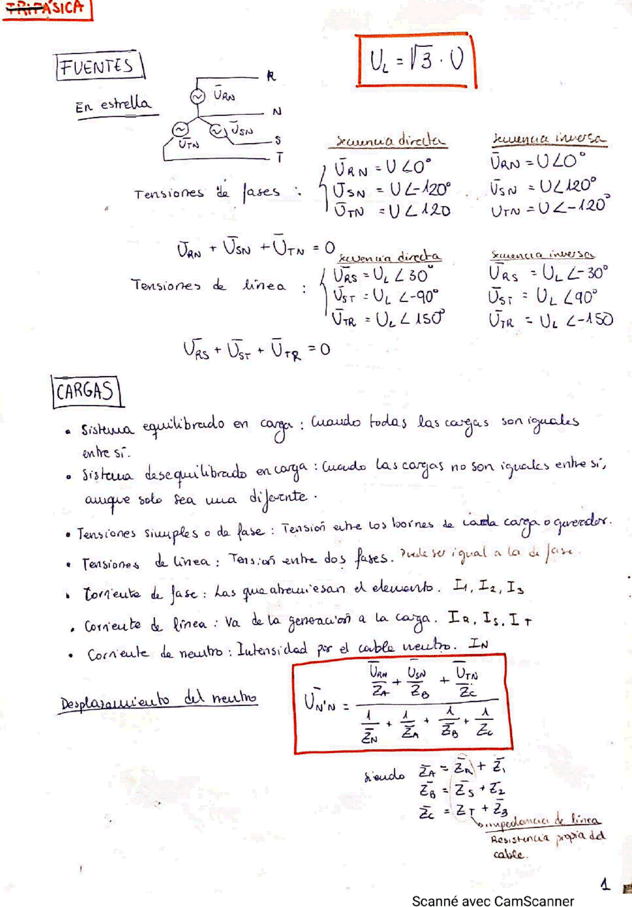 TRIFÁSICA
U_L = √3 · U
FUENTES
En estrella
R
Ū_RN
N
Ū_SN
S
Ū_TN
T
secuencia directa
secuencia inversa
Tensiones de fases :
Ū_RN = U∠0°
Ū_SN = U∠-120°
Ū_TN = U∠120
Ū_RN = U∠0°
Ū_SN = U∠120°
U_TN = U∠-120°
Ū_RN + Ū_SN + Ū_TN = 0
secuencia directa
secuencia inversa
Tensiones de línea :
Ū_RS = U_L ∠30°
Ū_ST = U_L ∠-90°
Ū_TR = U_L ∠150°
Ū_RS = U_L ∠-30°
Ū_ST = U_L ∠90°
Ū_TR = U_L ∠-150
Ū_RS + Ū_ST + Ū_TR = 0
CARGAS
• Sistema equilibrado en carga : Cuando todas las cargas son iguales
entre sí.
• Sistema desequilibrado en carga : Cuando las cargas no son iguales entre sí,
aunque solo sea una diferente.
• Tensiones simples o de fase : Tensión entre los bornes de cada carga o generador.
• Tensiones de línea : Tensión entre dos fases. Puede ser igual a la de fase.
• Corriente de fase : Las que atraviesan el elemento. I_1, I_2, I_3
• Corriente de línea : Va de la generación a la carga. I_R, I_S, I_T
• Corriente de neutro : Intensidad por el cable neutro. I_N
Desplazamiento del neutro
Ū_N'N = (Ū_RN/Z̄_A + Ū_SN/Z̄_B + Ū_TN/Z̄_C) / (1/Z̄_N + 1/Z̄_A + 1/Z̄_B + 1/Z̄_C)
siendo Z̄_A = Z̄_R + Z̄_1
Z̄_B = Z̄_S + Z̄_2
Z̄_C = Z_T + Z̄_3
impedancia de línea
Resistencia propia del
cable.
1
Scanné avec CamScanner